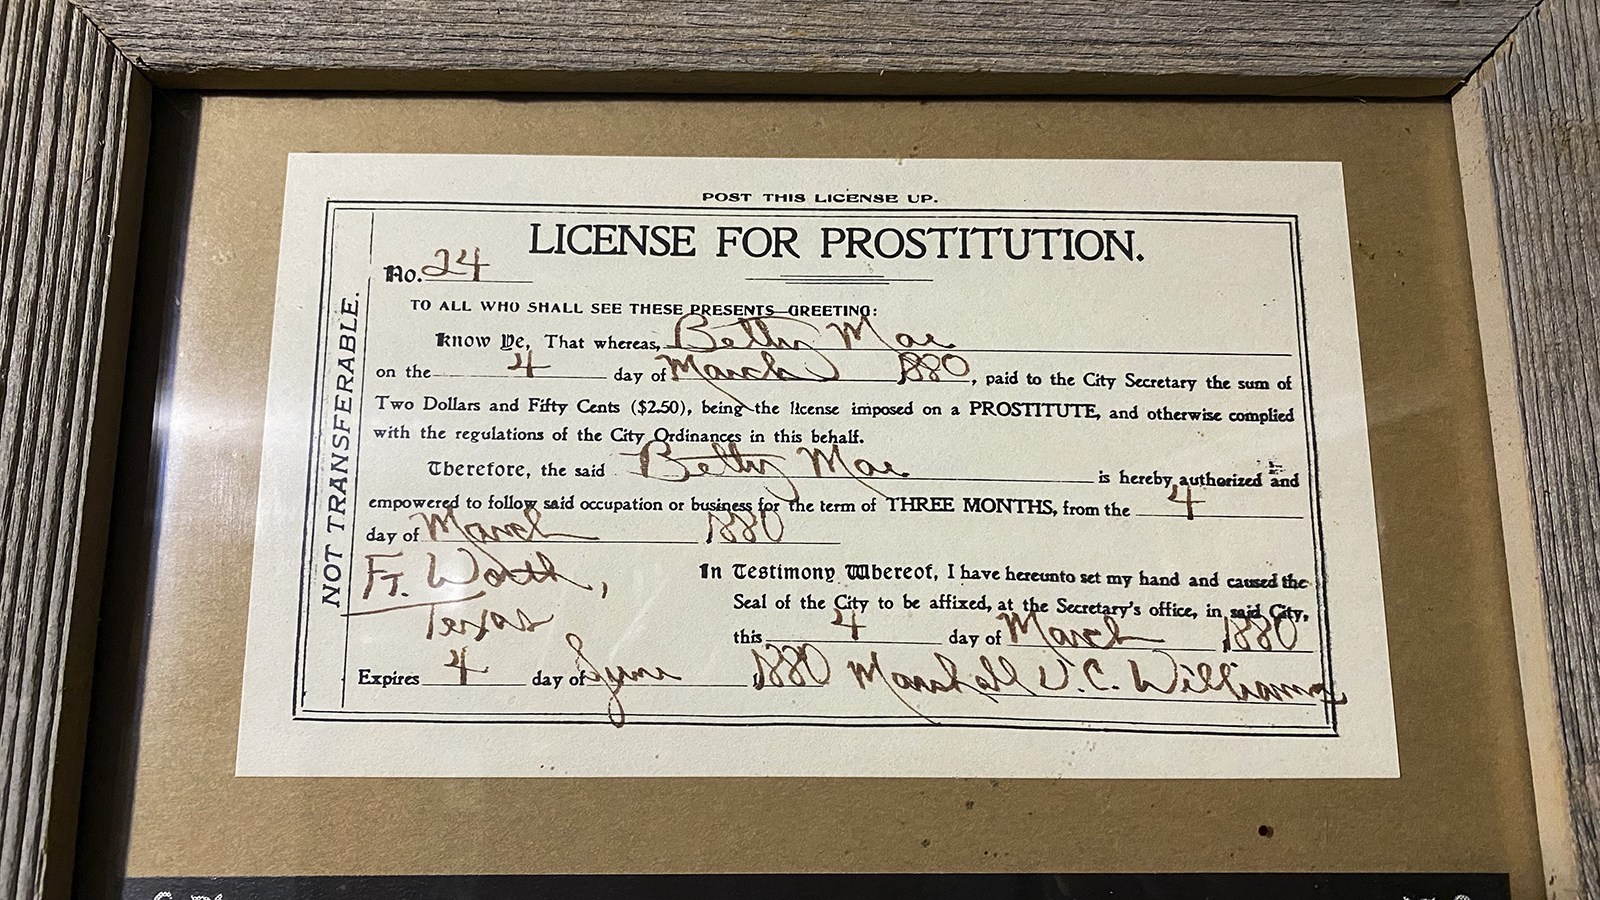 POST THIS LICENSE UP.
LICENSE FOR PROSTITUTION.
No. 24
TO ALL WHO SHALL SEE THESE PRESENTS—GREETING:
Know Ye, That whereas, Betty Mae
on the 4 day of March 1880, paid to the City Secretary the sum of
Two Dollars and Fifty Cents ($2.50), being the license imposed on a PROSTITUTE, and otherwise complied
with the regulations of the City Ordinances in this behalf.
Therefore, the said Betty Mae is hereby authorized and
empowered to follow said occupation or business for the term of THREE MONTHS, from the 4
day of March 1880
Ft. Worth,
Texas
In Testimony Whereof, I have hereunto set my hand and caused the
Seal of the City to be affixed, at the Secretary's office, in said City,
this 4 day of March 1880
Expires 4 day of June 1880 Marshall V.C. Williams
NOT TRANSFERABLE.